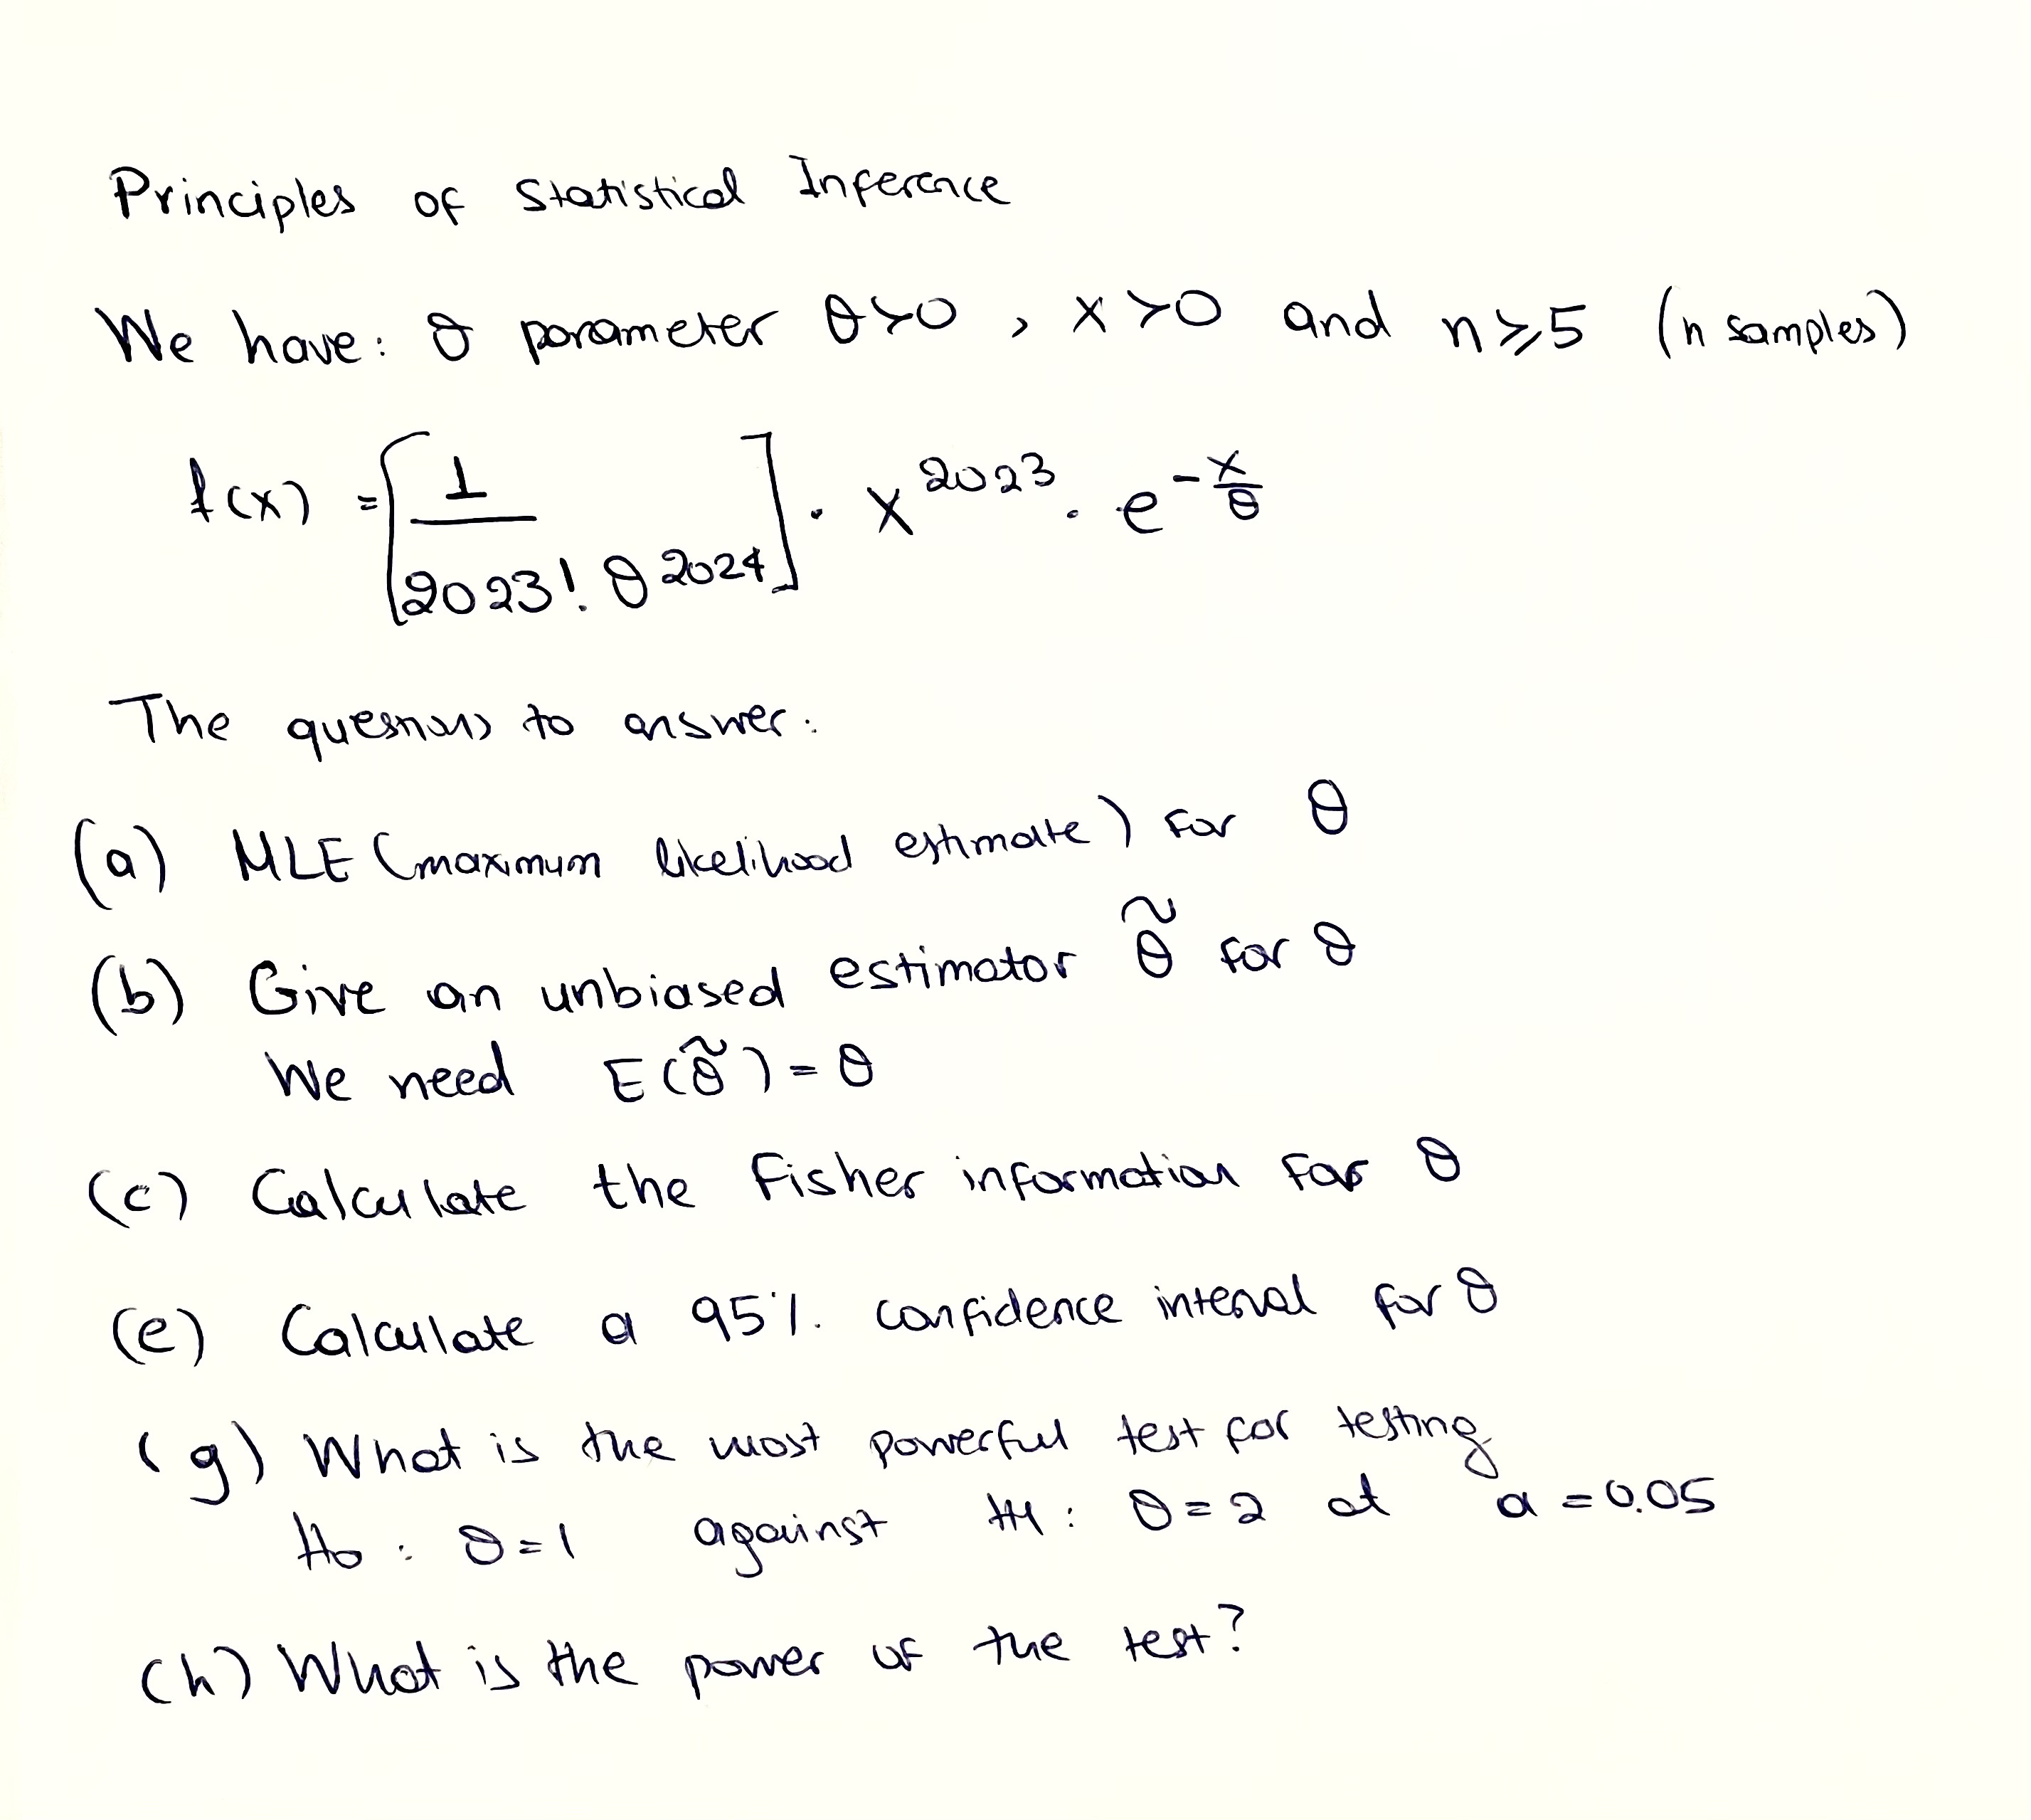 Principles of Statistical Inference
We have: θ parameter θ>0 , x>0 and n≥5 (n samples)
f(x) = [1 / 2023! . θ^2024] . x^2023 . e^-x/θ
The questions to answer:
(a) MLE (maximum likelihood estimate) for θ
(b) Give an unbiased estimator θ̃ for θ
We need E(θ̃) = θ
(c) Calculate the Fisher information for θ
(e) Calculate a 95%. confidence interval for θ
(g) What is the most powerful test for testing
H0 : θ=1 against H1 : θ=2 at a = 0.05
(h) What is the power of the test?